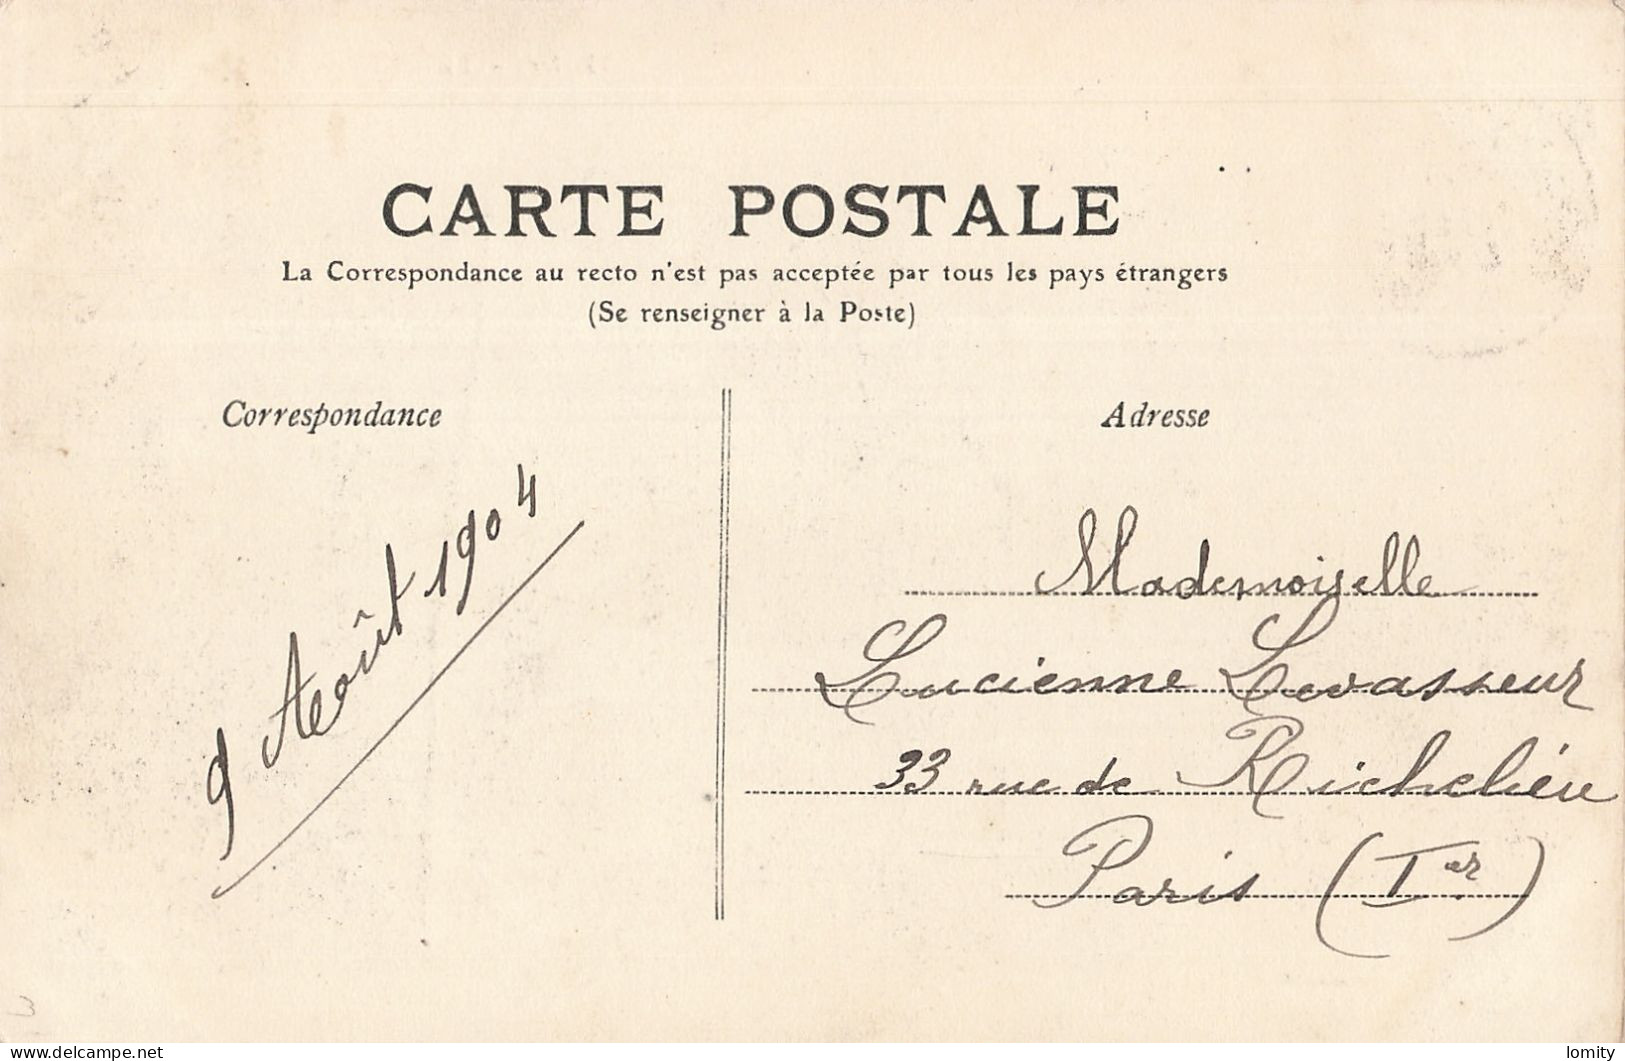 CARTE POSTALE
La Correspondance au recto n'est pas acceptée par tous les pays étrangers
(Se renseigner à la Poste)
Correspondance
9 Août 1904
Adresse
Mademoiselle
Lucienne Levasseur
33 rue de Richeliéu
Paris (Ier)
delcampe.net
lomity